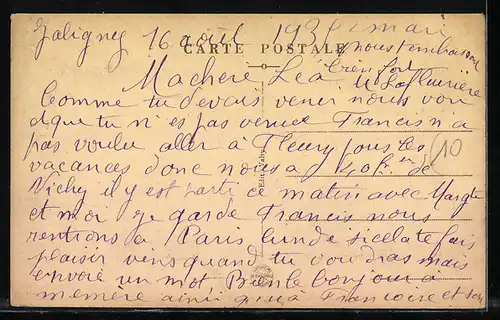 Jaligny 16 août 193 mari
CARTE POSTALE nous t'embrasons
bien fort
Ma chere Léa
comme tu devais venir nous voir
et que tu n'es pas venue Francis n'a
pas voulu aller à Fleury tous les
vacances donc nous a
10
Vichy il y est parti ce matin avec Margte
et moi je garde Francis nous
rentrons à Paris lundi si cela te fais
plaisir viens quand tu voudras mais
envoie un mot Bien le bonjour à
memère ainsi qu'à Francoise et son
Edit. Vichy